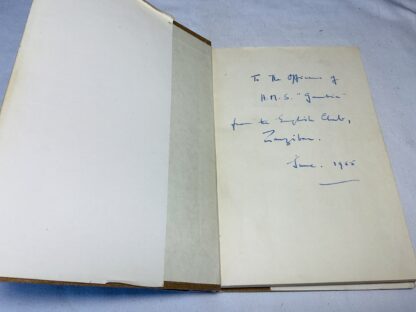 To The Officers of
H.M.S. "Gambia"
from the English Club,
Zanzibar.
June. 1955